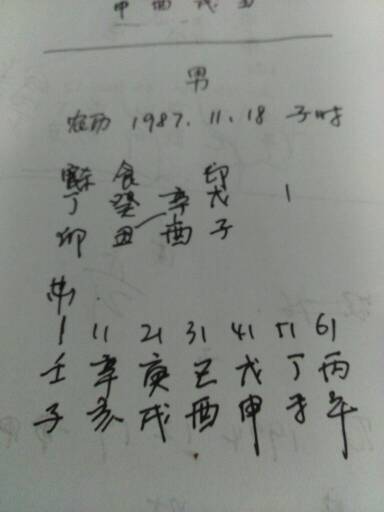 申酉戌亥
男
农历 1987.11.18 子时
食 印
丁 癸 辛 戊 1
卯 丑 酉 子
1 11 21 31 41 51 61
壬 辛 庚 己 戊 丁 丙
子 亥 戌 酉 申 未 午